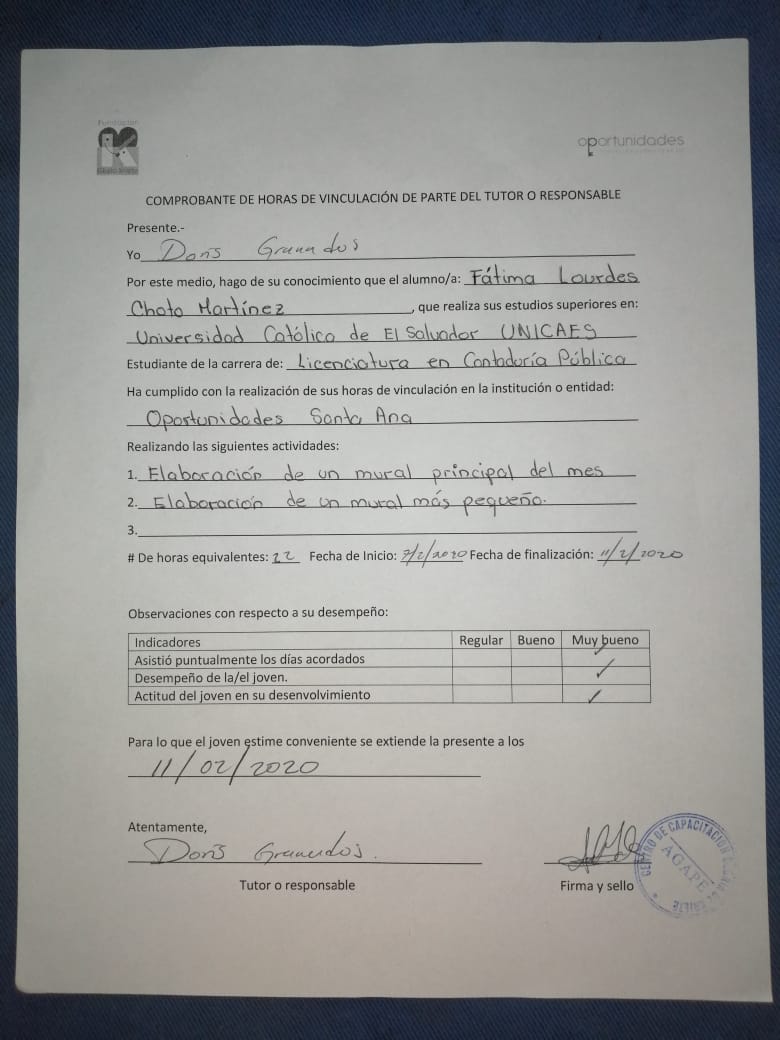 Fundación
oportunidades
COMPROBANTE DE HORAS DE VINCULACIÓN DE PARTE DEL TUTOR O RESPONSABLE
Presente.-
Yo Doris Granados
Por este medio, hago de su conocimiento que el alumno/a: Fátima Lourdes
Choto Martínez, que realiza sus estudios superiores en:
Universidad Católica de El Salvador UNICAES
Estudiante de la carrera de: Licenciatura en Contaduría Pública
Ha cumplido con la realización de sus horas de vinculación en la institución o entidad:
Oportunidades Santa Ana
Realizando las siguientes actividades:
1. Elaboración de un mural principal del mes
2. Elaboración de un mural más pequeño.
3.
# De horas equivalentes: 22 Fecha de Inicio: 7/2/2020 Fecha de finalización: 11/2/2020
Observaciones con respecto a su desempeño:
Indicadores Regular Bueno Muy bueno
Asistió puntualmente los días acordados ✓
Desempeño de la/el joven. ✓
Actitud del joven en su desenvolvimiento ✓
Para lo que el joven estime conveniente se extiende la presente a los
11/02/2020
Atentamente,
Doris Granados.
Tutor o responsable
Firma y sello
CENTRO DE CAPACITACIÓN
AGAPE